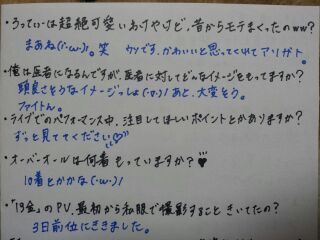 ・ろってぃーは超絶可愛いわけやけど、昔からモテまくったのww?
まあね(·ω·)!。笑 ウソです、かわいいと思ってくれてアリガト。
・僕は医者になるんですが、医者に対してどんなイメージをもってますか?
頭良さそうなイメージっしょ(·o·)! あと、大変そう。
ファイトん。
・ライブでのパフォーマンス中、注目してほしいポイントとかありますか?
ずっと見ててください♡
・オーバーオールは何着もっていますか?
10着とかかな(·ω·)!
・「13金」のPV、最初から私服で撮影すること きいてたの?
3日前位にききました。